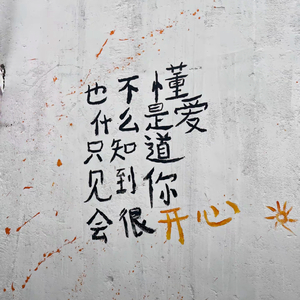 也不懂
什么是爱
只知道
见到你
会很开心